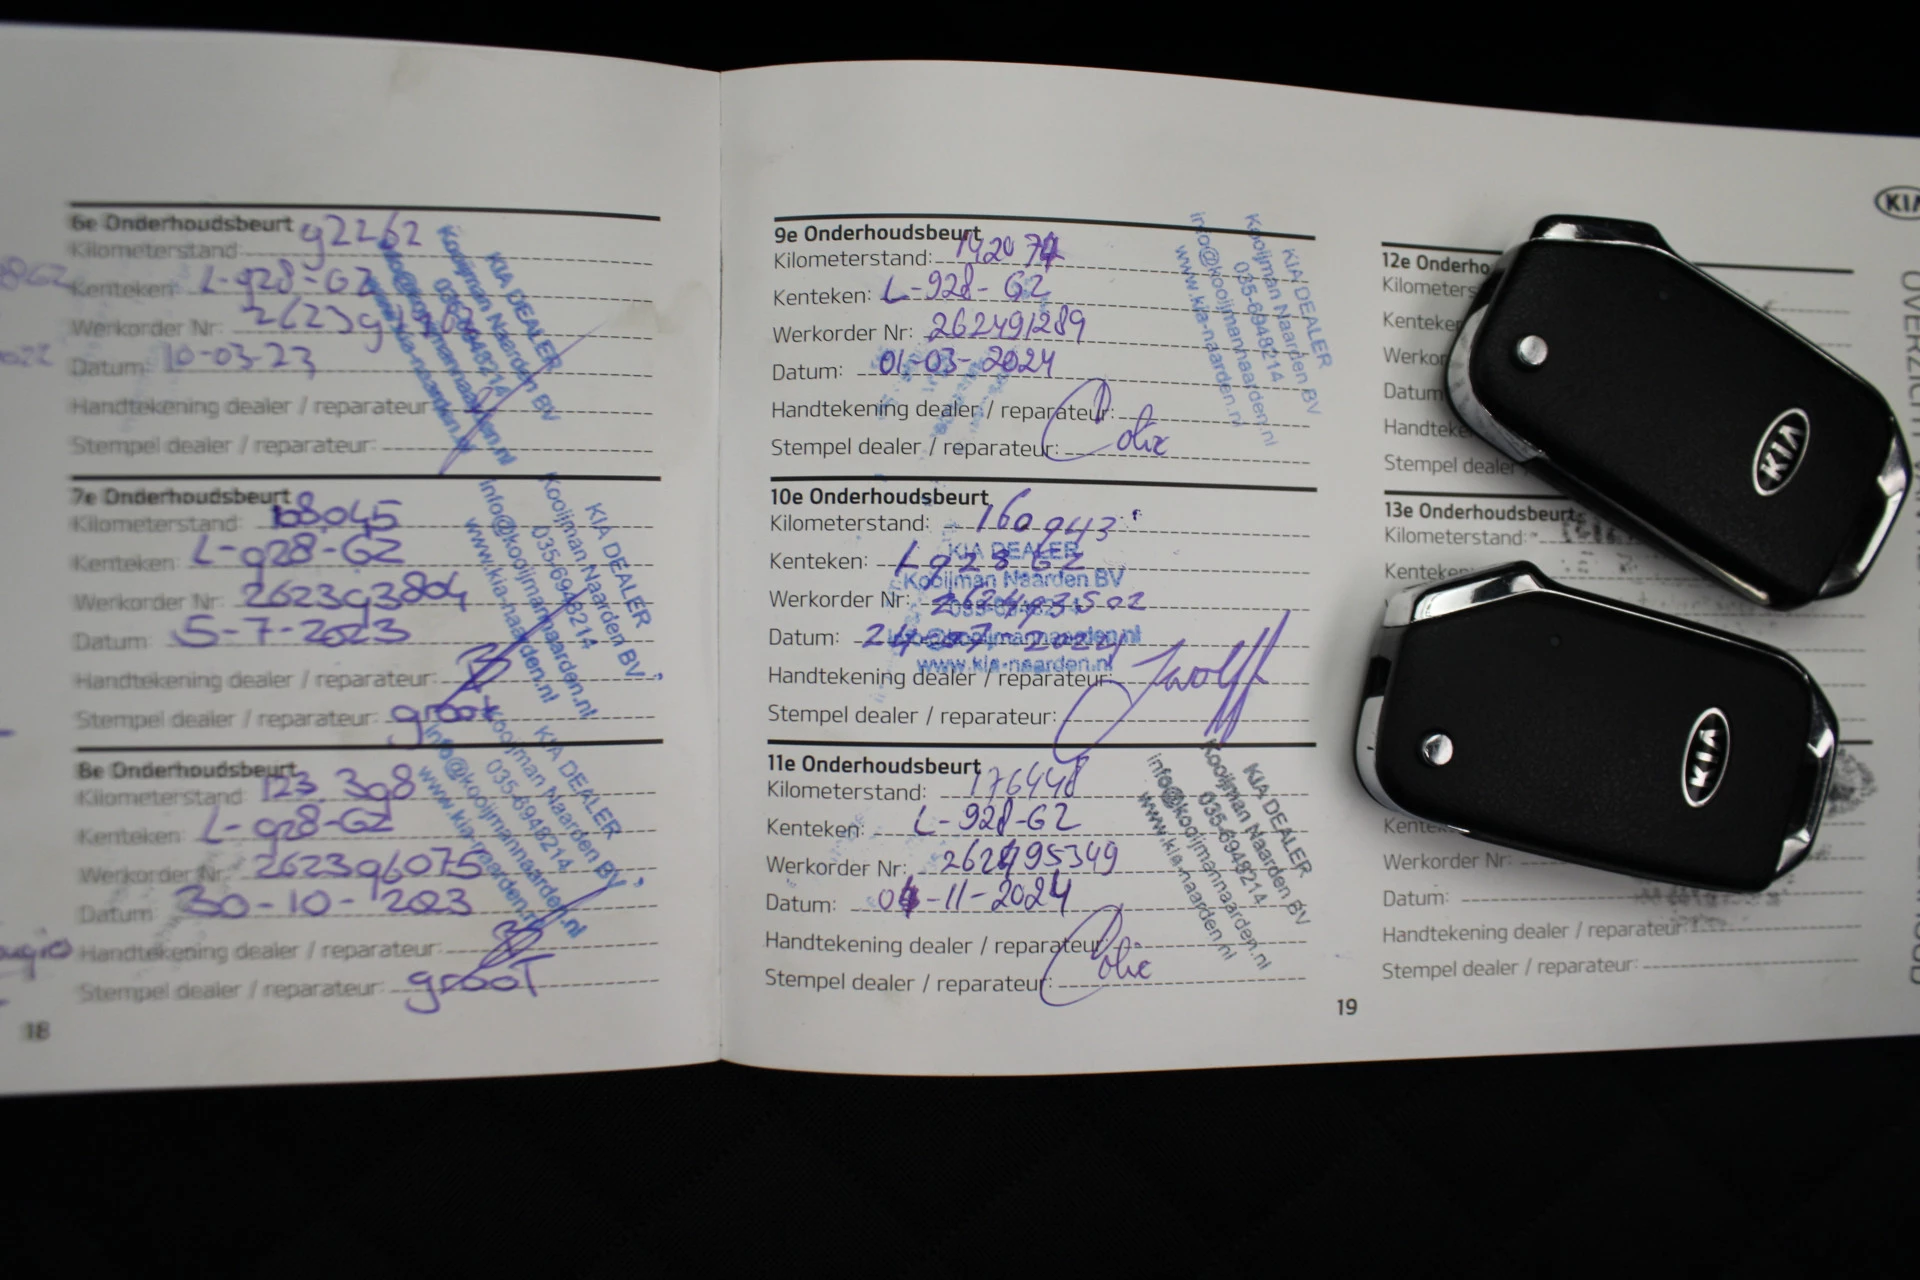 6e Onderhoudsbeurt
Kilometerstand: 92262
Kenteken: L-928-GZ
Werkorder Nr:
Datum: 10-03-23
Handtekening dealer / reparateur:
Stempel dealer / reparateur:
KIA DEALER
Kooijman Naarden BV
035-6948214
info@kooijmannaarden.nl
www.kia-naarden.nl
7e Onderhoudsbeurt
Kilometerstand: 108.045
Kenteken: L-928-GZ
Werkorder Nr: 262393804
Datum: 5-7-2023
Handtekening dealer / reparateur:
Stempel dealer / reparateur: groot
KIA DEALER
Kooijman Naarden BV
035-6948214
info@kooijmannaarden.nl
www.kia-naarden.nl
8e Onderhoudsbeurt
Kilometerstand: 123.398
Kenteken: L-928-GZ
Werkorder Nr: 262396075
Datum: 30-10-
Handtekening dealer / reparateur:
Stempel dealer / reparateur: grooT
KIA DEALER
Kooijman Naarden BV
035-6948214
info@kooijmannaarden.nl
www.kia-naarden.nl
18
9e Onderhoudsbeurt
Kilometerstand: 142074
Kenteken: L-928-GZ
Werkorder Nr: 262491289
Datum: 01-03-2024
Handtekening dealer / reparateur:
Stempel dealer / reparateur:
KIA DEALER
Kooijman Naarden BV
035-6948214
info@kooijmannaarden.nl
www.kia-naarden.nl
10e Onderhoudsbeurt
Kilometerstand: 160943
Kenteken: L 928 GZ
KIA DEALER
Kooijman Naarden BV
Werkorder Nr: 262493502
035-6948214
Datum: 24-07-2024
info@kooijmannaarden.nl
www.kia-naarden.nl
Handtekening dealer / reparateur:
Stempel dealer / reparateur:
11e Onderhoudsbeurt
Kilometerstand: 176448
Kenteken: L-928-GZ
Werkorder Nr: 262495349
Datum: -11-2024
Handtekening dealer / reparateur:
Stempel dealer / reparateur:
KIA DEALER
Kooijman Naarden BV
035-6948214
info@kooijmannaarden.nl
www.kia-naarden.nl
19
KIA
12e Onderho
Kilometers
Kenteke
Werkor
Datum
Handteke
Stempel dealer
13e Onderhoudsbeurt
Kilometerstand:
Kenteken
Kente
Werkorder Nr:
Datum:
Handtekening dealer / reparateur:
Stempel dealer / reparateur:
OVERZICHT
KIA
KIA